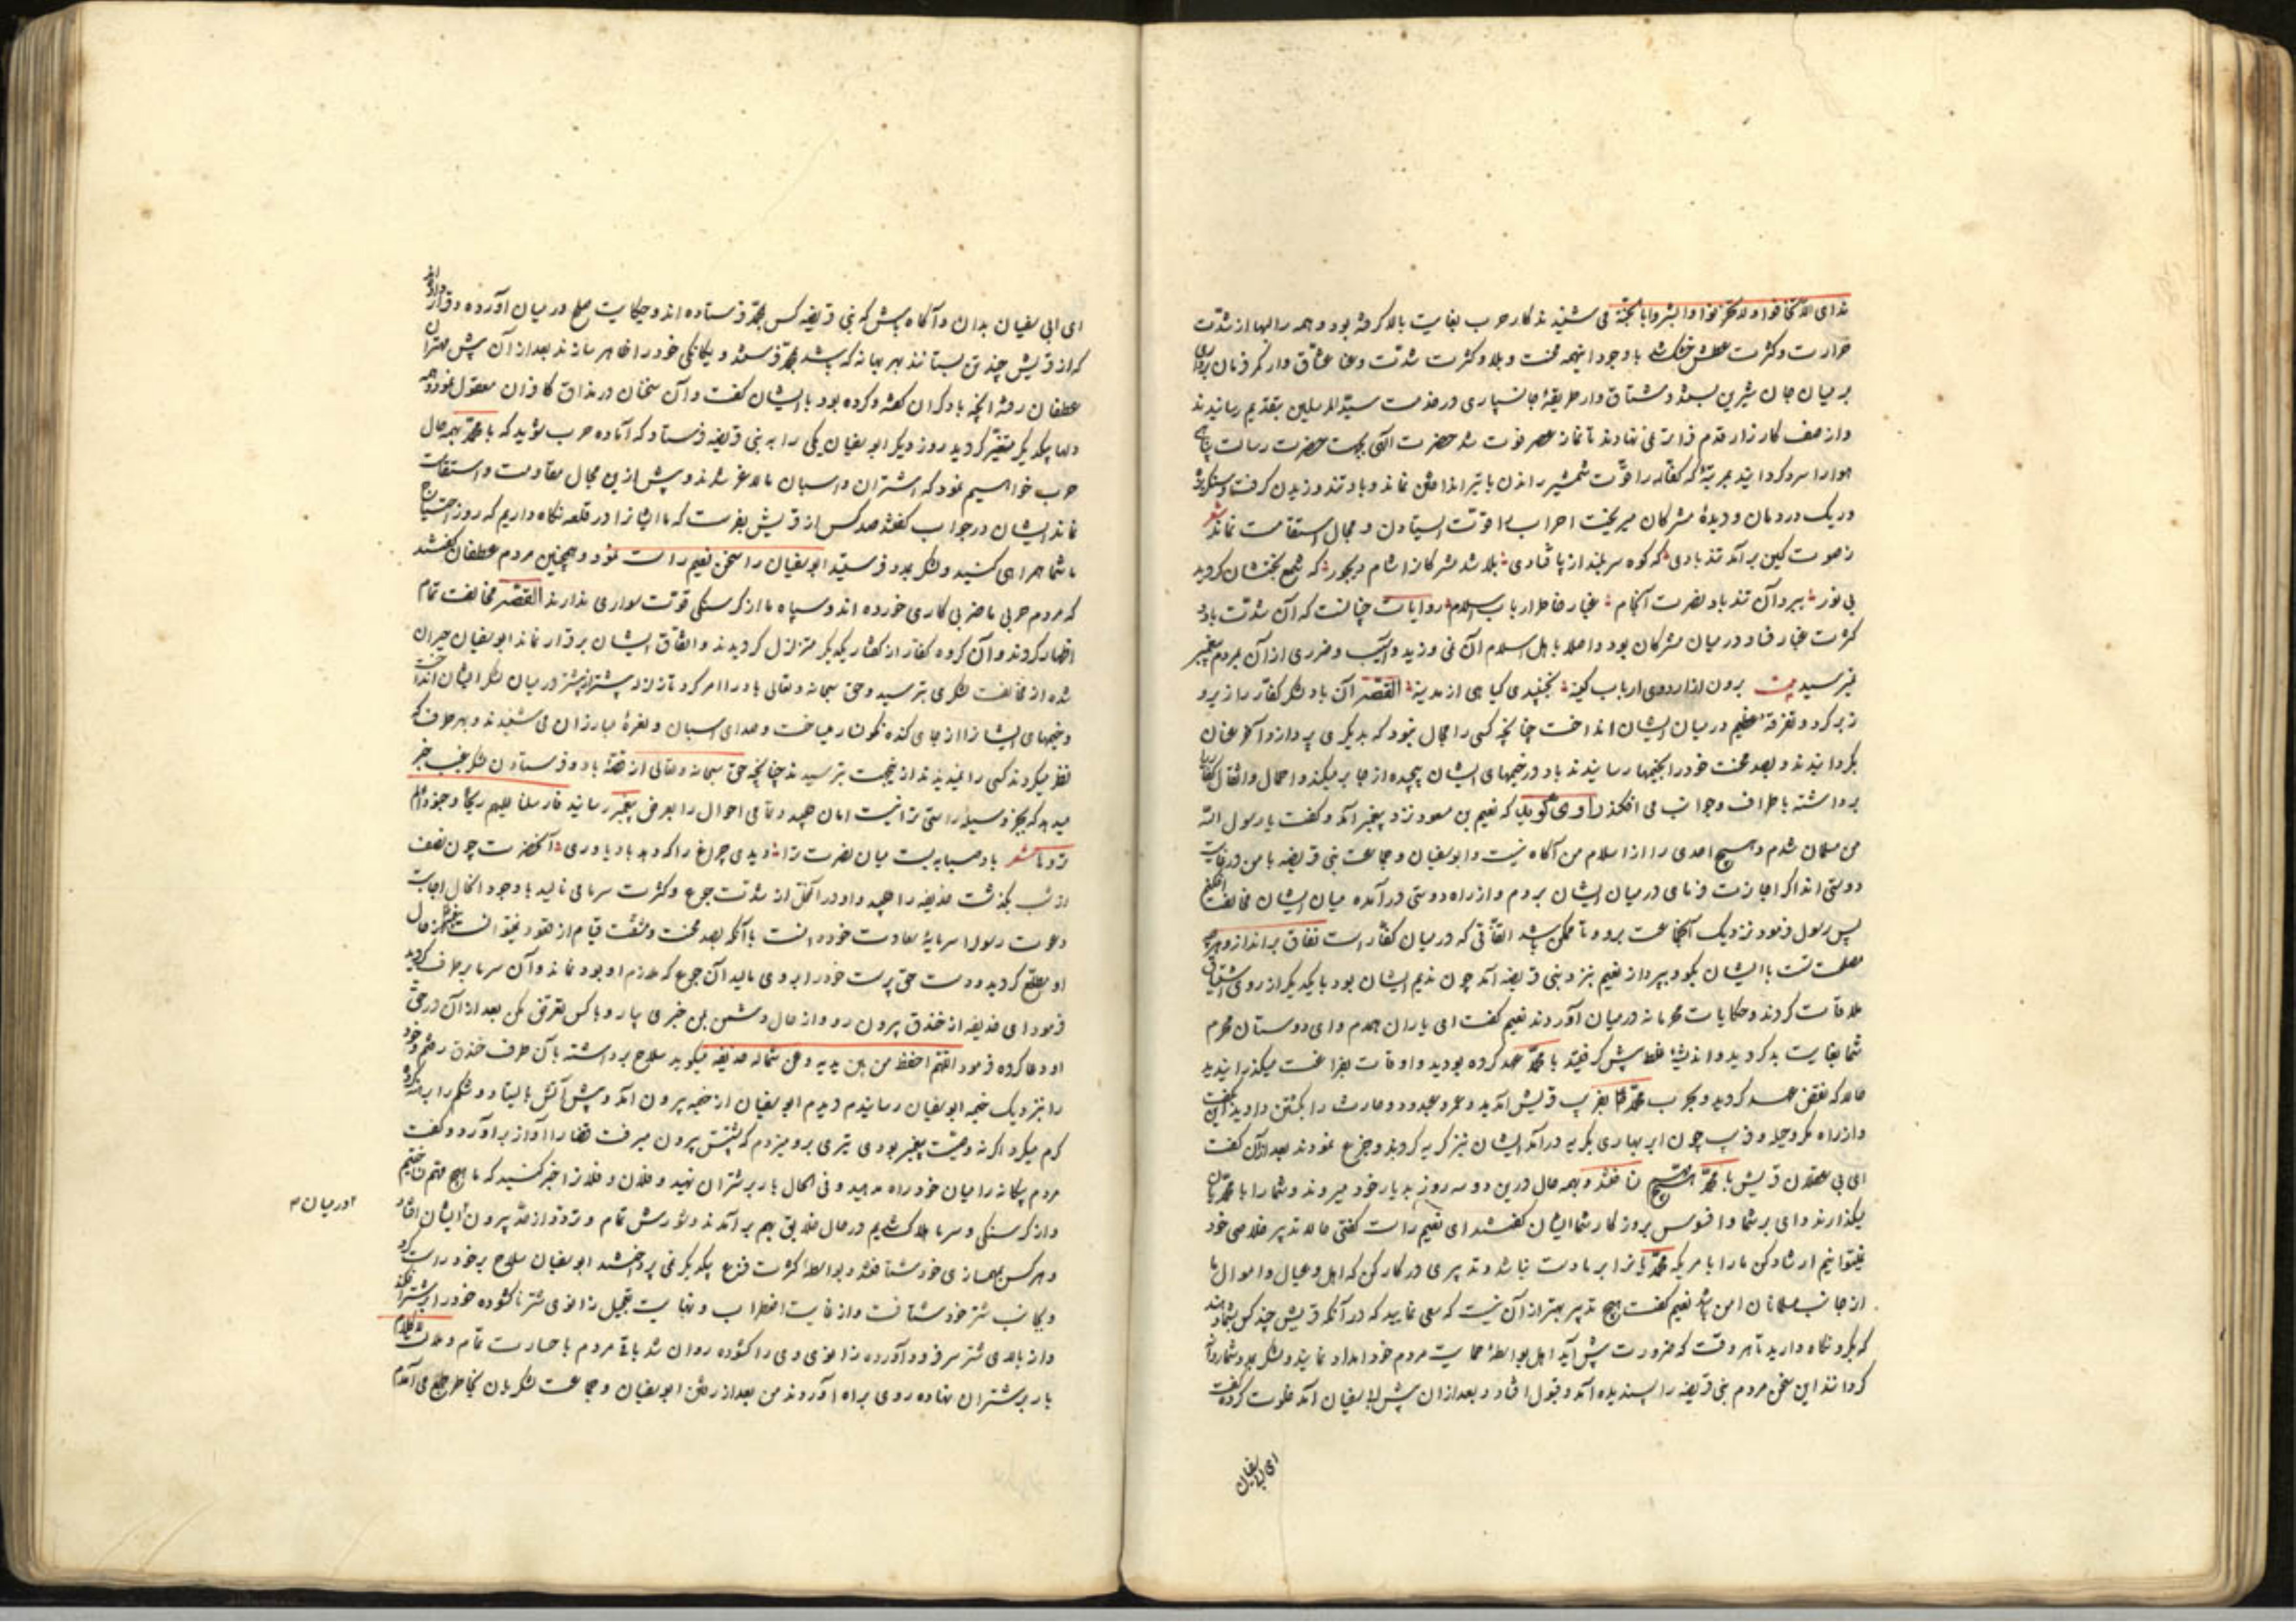 ندای الا تخافوا ولا تحزنوا وابشروا بالجنة می شنیدند کار حرب بغایت بالا گرفته بود و همه را لبها از شدت
حرارت و کثرت عطش خشک شده با وجود اینهمه محنت و بلا و کثرت شدت و عنا عشاق وار کمر فرمان برداری
بر میان جان شیرین بسته و مشتاق وار طریقهٔ جانسپاری در خدمت سید المرسلین بتقدیم رسانیدند
و از صف کارزار قدم فراتر نمی نهادند تا نماز عصر فوت شد حضرت الهی بجهت حضرت رسالت پناهی
هوا را سرد گردانید بمرتبهٔ که کفار را قوت شمشیر راندن یا تیر انداختن نماند و باد تند وزیدن گرفت و سنگریزه
و ریک در دهان و دیدهٔ مشرکان میریخت احزاب را قوت ایستادن و مجال استقامت نماند شعر
ز صوت کین برآمد تند بادی که کوه سربلند از پا فتادی بلا شد مشرکانرا شام دیجور که شمع بختشان گردید
بی نور ببرد آن تند باد نصرت انجام غبار خاطر ارباب اسلام روایات چنانست که آن شدت باد و
کثرت غبار فساد در میان مشرکان بود و اصلا باهل اسلام آن نمی وزید و آسیب و ضرری از آن بمردم پیغمبر
نمیرسید بیت برون از اردوی ارباب کینه نجنبیدی گیاهی از مدینه القصه آن باد لشکر کفار را زیر و
زبر کرد و تفرقهٔ عظیم در میان ایشان انداخت چنانچه کسی را مجال نبود که بدیگری پردازد آخر عنان
بگردانیدند و بصد محنت خود را بخیمها رسانیدند باد در خیمهای ایشان پیچیده از جا برمیکند و احمال و اثقال کفار را
برداشته باطراف و جوانب می افکند راوی گوید که نعیم بن مسعود نزد پیغمبر آمد و گفت یا رسول الله
من مسلمان شدم و هیچ احدی را از اسلام من آگاه نیست و ابوسفیان و جماعت بنی قریضه با من در غایت
دوستی اند اگر اجازت فرمای در میان ایشان بروم و از راه دوستی درآمده میان ایشان مخالفت افکنم
پس رسول فرمود نزدیک آنجماعت برو و تا ممکن باشد اتفاقی که در میان کفار است نفاق برانداز و هر چه
مصلحت تست با ایشان بگو و بپرداز نعیم نزد بنی قریضه آمد چون ندیم ایشان بود با یکدیگر از روی اشتیاق
ملاقات کردند و حکایات محرمانه در میان آوردند نعیم گفت ای یاران همدم و ای دوستان محرم
شما بغایت بد کردید و اندیشهٔ غلط پیش گرفتید با محمد عهد کرده بودید و اوقات بفراغت میگذرانیدید
حالا که نقض عهد کردید و بحرب محمد بفریب قریش آمدید و عمرو عبدود و حارث را بکشتن دادید این بگفت
و از راه مکر و حیله و فریب چون ابر بهاری بگریه درآمد ایشان نیز گریه کردند و جزع نمودند بعد از آن گفت
ای بی عقلان قریش با محمد هیچ نساختند و بهمه حال درین دو سه روز بدیار خود میروند و شما را با محمدیان
میگذارند وای بر شما و افسوس بروزگار شما ایشان گفتند ای نعیم راست گفتی حالا تدبیر خلاصی خود
نمیتوانیم ارشاد کن ما را بامریکه محمدیانرا بر ما دست نباشد و تدبیری در کار کن که اهل و عیال و اموال ما
از جانب مسلمانان امن باشد نعیم گفت هیچ تدبیر بهتر از آن نیست که سعی نمایید که در آنکه قریش چند کس بشما دهند
که بگرو نگاه دارید تا هر وقت که ضرورت پیش آید اهل بواسطهٔ حمایت مردم خود امداد نمایند و لشکر بمدد شما روانه
گردانند این سخن مردم بنی قریضه را پسندیده آمد و قبول افتاد و بعد از ان پیش ابوسفیان آمد خلوت کرده گفت
ای ابی سفیان
ای ابی سفیان بدان و آگاه باش که بنی قریضه کس بمحمد فرستاده اند و حکایت صلح در میان آورده و قرار داده اند
که از قریش چند تن بستانند بهر بهانه که باشد بمحمد فرستند و یگانگی خود را ظاهر سازند بعد از آن پیش مهتران
عطفان رفته آنچه با دیگران گفته و کرده بود با ایشان گفت و آن سخنان در مذاق کافران معقول نمود همه
دلها بیکدیگر متغیر گردید روز دیگر ابوسفیان یکی را به بنی قریضه فرستاد که آماده حرب شوید که با محمد بهمه حال
حرب خواهیم نمود که اشتران و اسبان ما لاغر شدند و پیش ازین مجال مقاومت و استقامت
نماند ایشان در جواب گفتند صد کس از قریش بفرست که ما ایشانرا در قلعه نگاه داریم که روز احتیاج
با شما همراهی کنید و لشکر بمدد فرستید ابوسفیان را سخن نعیم راست نمود و همچنین مردم عطفان گفتند
که مردم حربی ما ضربی کاری خورده اند و سپاه ما از گرسنگی قوت سواری ندارند القصه مخالفت تمام
اظهار کردند و آن گروه کفار از گفتار یکدیگر متزلزل گردیدند و اتفاق ایشان برقرار نماند ابوسفیان حیران
شده از مخالفت لشکری بترسید و حق سبحانه و تعالی باد را امر کرد تا زلزله بیشتر از پیشتر در میان لشکر ایشان انداخت
و خیمهای ایشانرا از جای کنده نگونسار میساخت و صدای اسبان و نعرهٔ مبارزان می شنیدند و بهر طرف که
نظر میکردند کسی را نمیدیدند از نهیب بترسیدند چنانچه حق سبحانه و تعالی از قصهٔ باد و فرستادن لشکر غیب خبر
میدهد که بجز وسیله راستی ترا نیست امان هیچ و تمامی احوال را بعرض پیغمبر رسانید فارسلنا علیهم ریحا وجنودا لم
تروها شعر باد صبا ببست میان نصرت ترا دیدی چراغ را که دهد باد یاوری آنحضرت چون نصف
از شب بگذشت حذیفه را جهید و او در آنمحل از شدت جوع و کثرت سرما می نالید با وجود آنحال اجابت
دعوت رسول را سرمایهٔ سعادت خود دانست با آنکه بصد محنت و مشقت قیام از قعود نمیتوانست پیغمبر از حال
او مطلع گردید و دست حق پرست خود را بر وی مالید آن جوع که ملازم او بود نماند و آن سرما برطرف گردید
فرمود ای حذیفه از خندق بیرون رو و از حال دشمن بمن خبری بیار و با کس تعرض مکن بعد از آن در حق
او دعا کرده فرمود اللهم احفظ من بین یدیه وعن شماله حذیفه میگوید سلاح برداشته بآن طرف خندق رفتم و خود
را بنزدیک خیمه ابوسفیان رسانیدم دیدم ابوسفیان از خیمه بیرون آمد و پیش آتش بایستاد و شکم را برهنه کرده
گرم میکرد اگر نه وصیت پیغمبر بودی تیری برو میزدم که از پشتش بیرون میرفت قضا را آواز برآورد و گفت
مردم بیگانه را میان خود راه مدهید و فی الحال بار بر شتران نهید و فلان و فلانرا خبر کنید که ما هیچ مهم نساختیم
و از گرسنگی و سرما هلاک شدیم در حال خلایق بهم برآمدند و شورش تمام و تردد از حد بیرون ایشان افتاد
۲ در میان ۳
و هر کس بجهازی خود شتافتند و بواسطهٔ کثرت فزع بیکدیگر نمی پرداختند ابوسفیان سلاح بر خود راست کرد
و بجانب شتر خود شتافت و از غایت اضطراب و نهایت تعجیل زانوی شتر ناگشوده خود را بر شتر افکند
و از بالای شتر سر فرود آورده زانوی وی را گشوده روان شد باقی مردم با خسارت تمام و ملالت لا کلام
بار بر شتران نهاده روی براه آوردند من بعد از رفتن ابوسفیان و جماعت لشکریان بخاطر جمع می آمدم